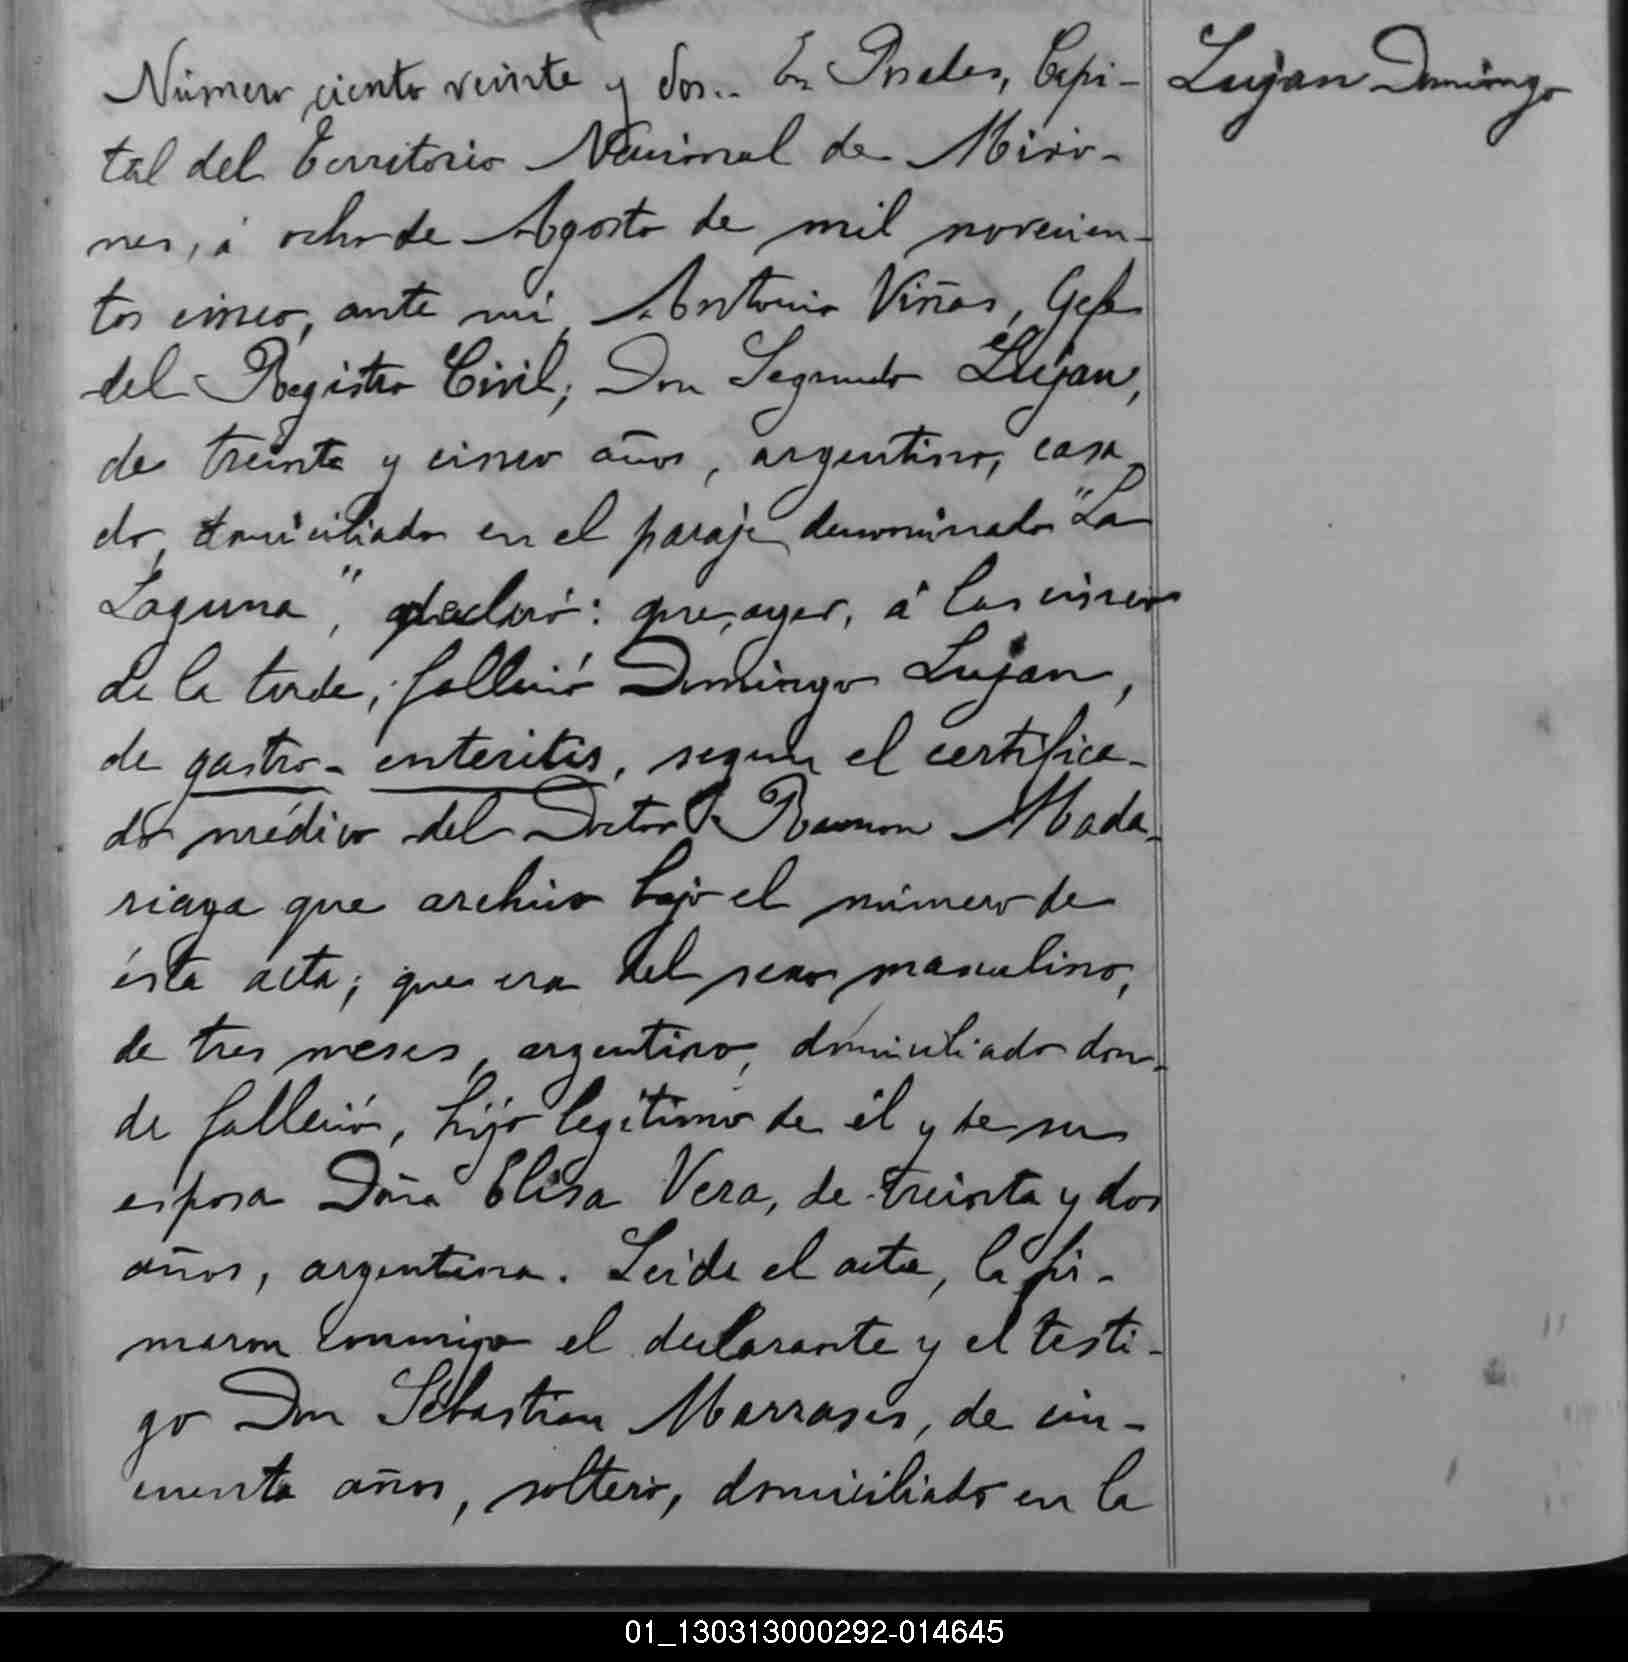 Número ciento veinte y dos.. En Posadas, Capi-
tal del Territorio Nacional de Misio-
nes, á ocho de Agosto de mil novecien-
tos cinco, ante mí, Antonio Viñas, Gefe
del Registro Civil; Don Segundo Lujan,
de treinta y cinco años, argentino, casa
do, domiciliado en el paraje denominado "La
Laguna", declaró: que, ayer, á las cinco
de la tarde, falleció Domingo Lujan,
de gastro-enteritis, segun el certifica-
do médico del Doctor Ramon Mada-
riaga que archivo bajo el número de
ésta acta; que era del sexo masculino,
de tres meses, argentino, domiciliado don-
de falleció, hijo legítimo de él y de su
esposa Doña Elisa Vera, de treinta y dos
años, argentina. Leida el acta, la fir-
maron conmigo el declarante y el testi-
go Don Sebastian Marrases, de cin-
cuenta años, soltero, domiciliado en la
Lujan Domingo
01_130313000292-014645